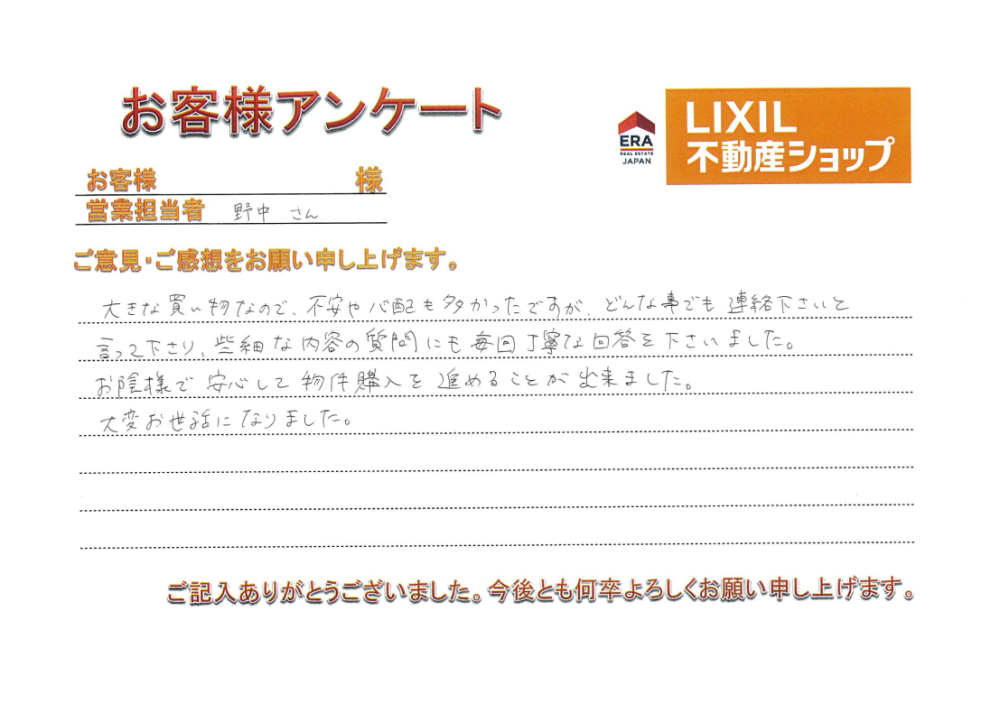 お客様アンケート
ERA
REAL ESTATE
JAPAN
LIXIL
不動産ショップ
お客様 様
営業担当者 野中 さん
ご意見・ご感想をお願い申し上げます。
大きな買い物なので、不安や心配も多かったですが、どんな事でも連絡下さいと
言って下さり、些細な内容の質問にも毎回丁寧な回答を下さいました。
お陰様で安心して物件購入を進めることが出来ました。
大変お世話になりました。
ご記入ありがとうございました。今後とも何卒よろしくお願い申し上げます。